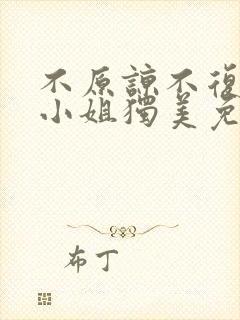 不原諒不復
小姐獨美免
布丁